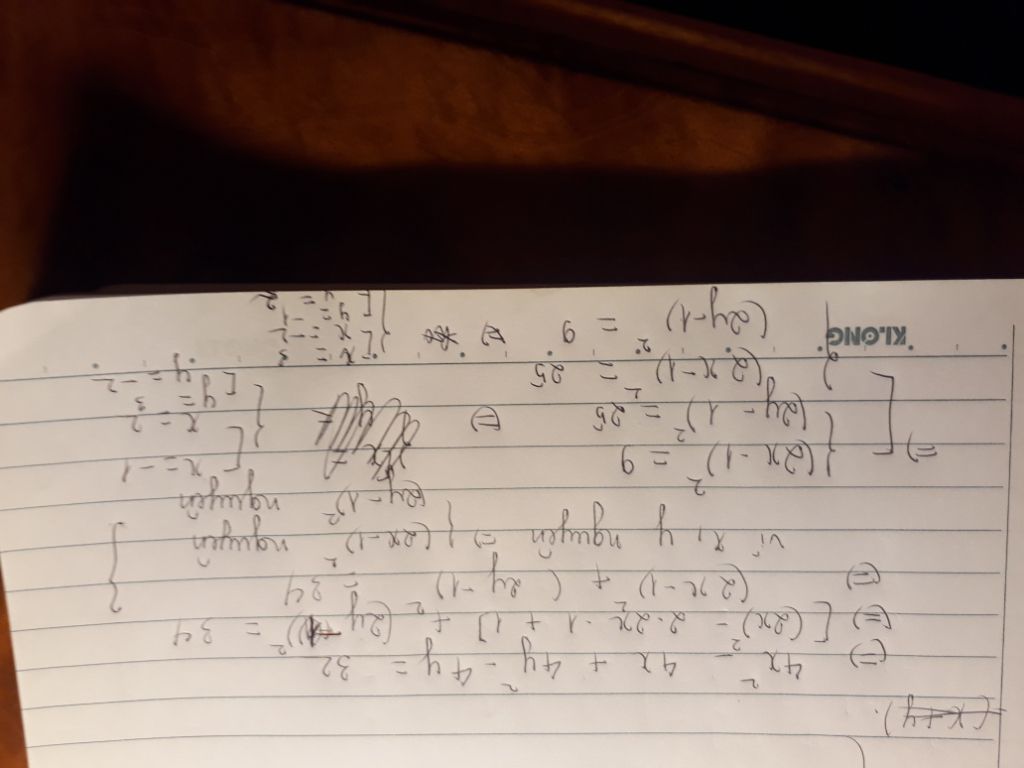 (x+y).
(=) 4x² - 4x + 4y² - 4y = 32
(=) [(2x)² - 2.2x.1 + 1] + (2y-1)² = 34
(=) (2x-1)² + (2y-1)² = 34
vì x, y nguyên => { (2x-1)² nguyên
(2y-1)² nguyên }
=> [ { (2x-1)² = 9
(2y-1)² = 25 (=)
{ [ x = -1
x = 2
[ y = 3
y = -2
{ (2x-1)² = 25
(2y-1)² = 9 (=)
{ [ x = 3
x = -2
[ y = -1
y = 2
KLONG